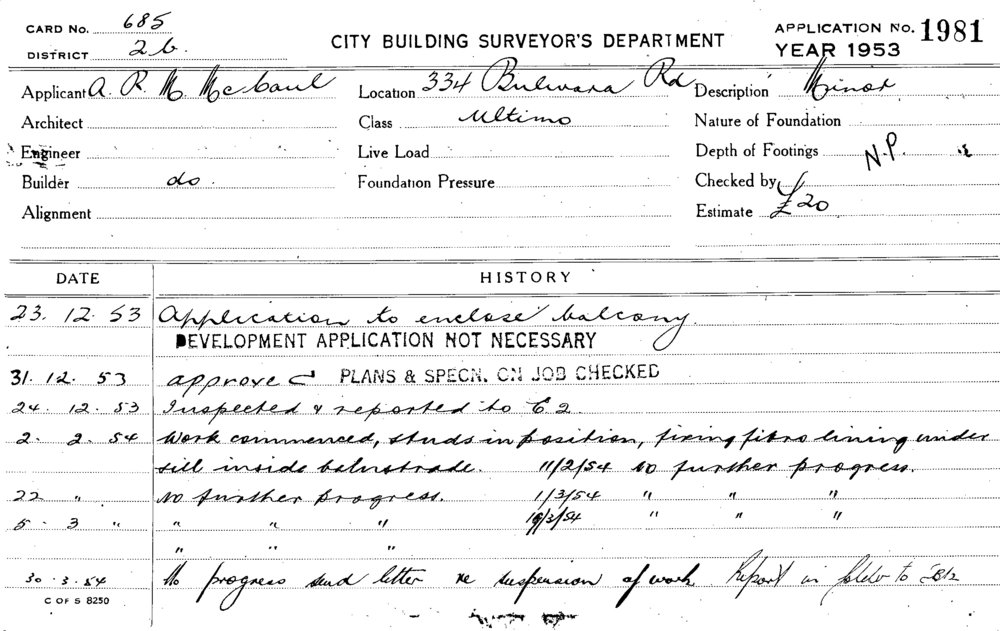 CARD No. 685
DISTRICT 2b.
CITY BUILDING SURVEYOR'S DEPARTMENT
APPLICATION No. 1981
YEAR 1953
Applicant A. R. M. McCaul
Location 334 Bulwara Rd
Description Minor
Architect
Class Ultimo
Nature of Foundation
Engineer
Live Load
Depth of Footings N.P.
Builder do.
Foundation Pressure
Checked by
Alignment
Estimate £20
DATE HISTORY
23. 12. 53 Application to enclose balcony.
DEVELOPMENT APPLICATION NOT NECESSARY
31. 12. 53 approved PLANS & SPECN. ON JOB CHECKED
24. 12. 53 Inspected & reported to C2.
2. 2. 54 Work commenced, studs in position, fixing fibro lining under
sill inside balustrade. 11/2/54 No further progress.
22 " No further progress. 1/3/54 " " "
5. 3 " " " " /3/54 " " "
" " "
30. 3. 54 No progress send letter re suspension of work. Report in folder to
C OF S 8250